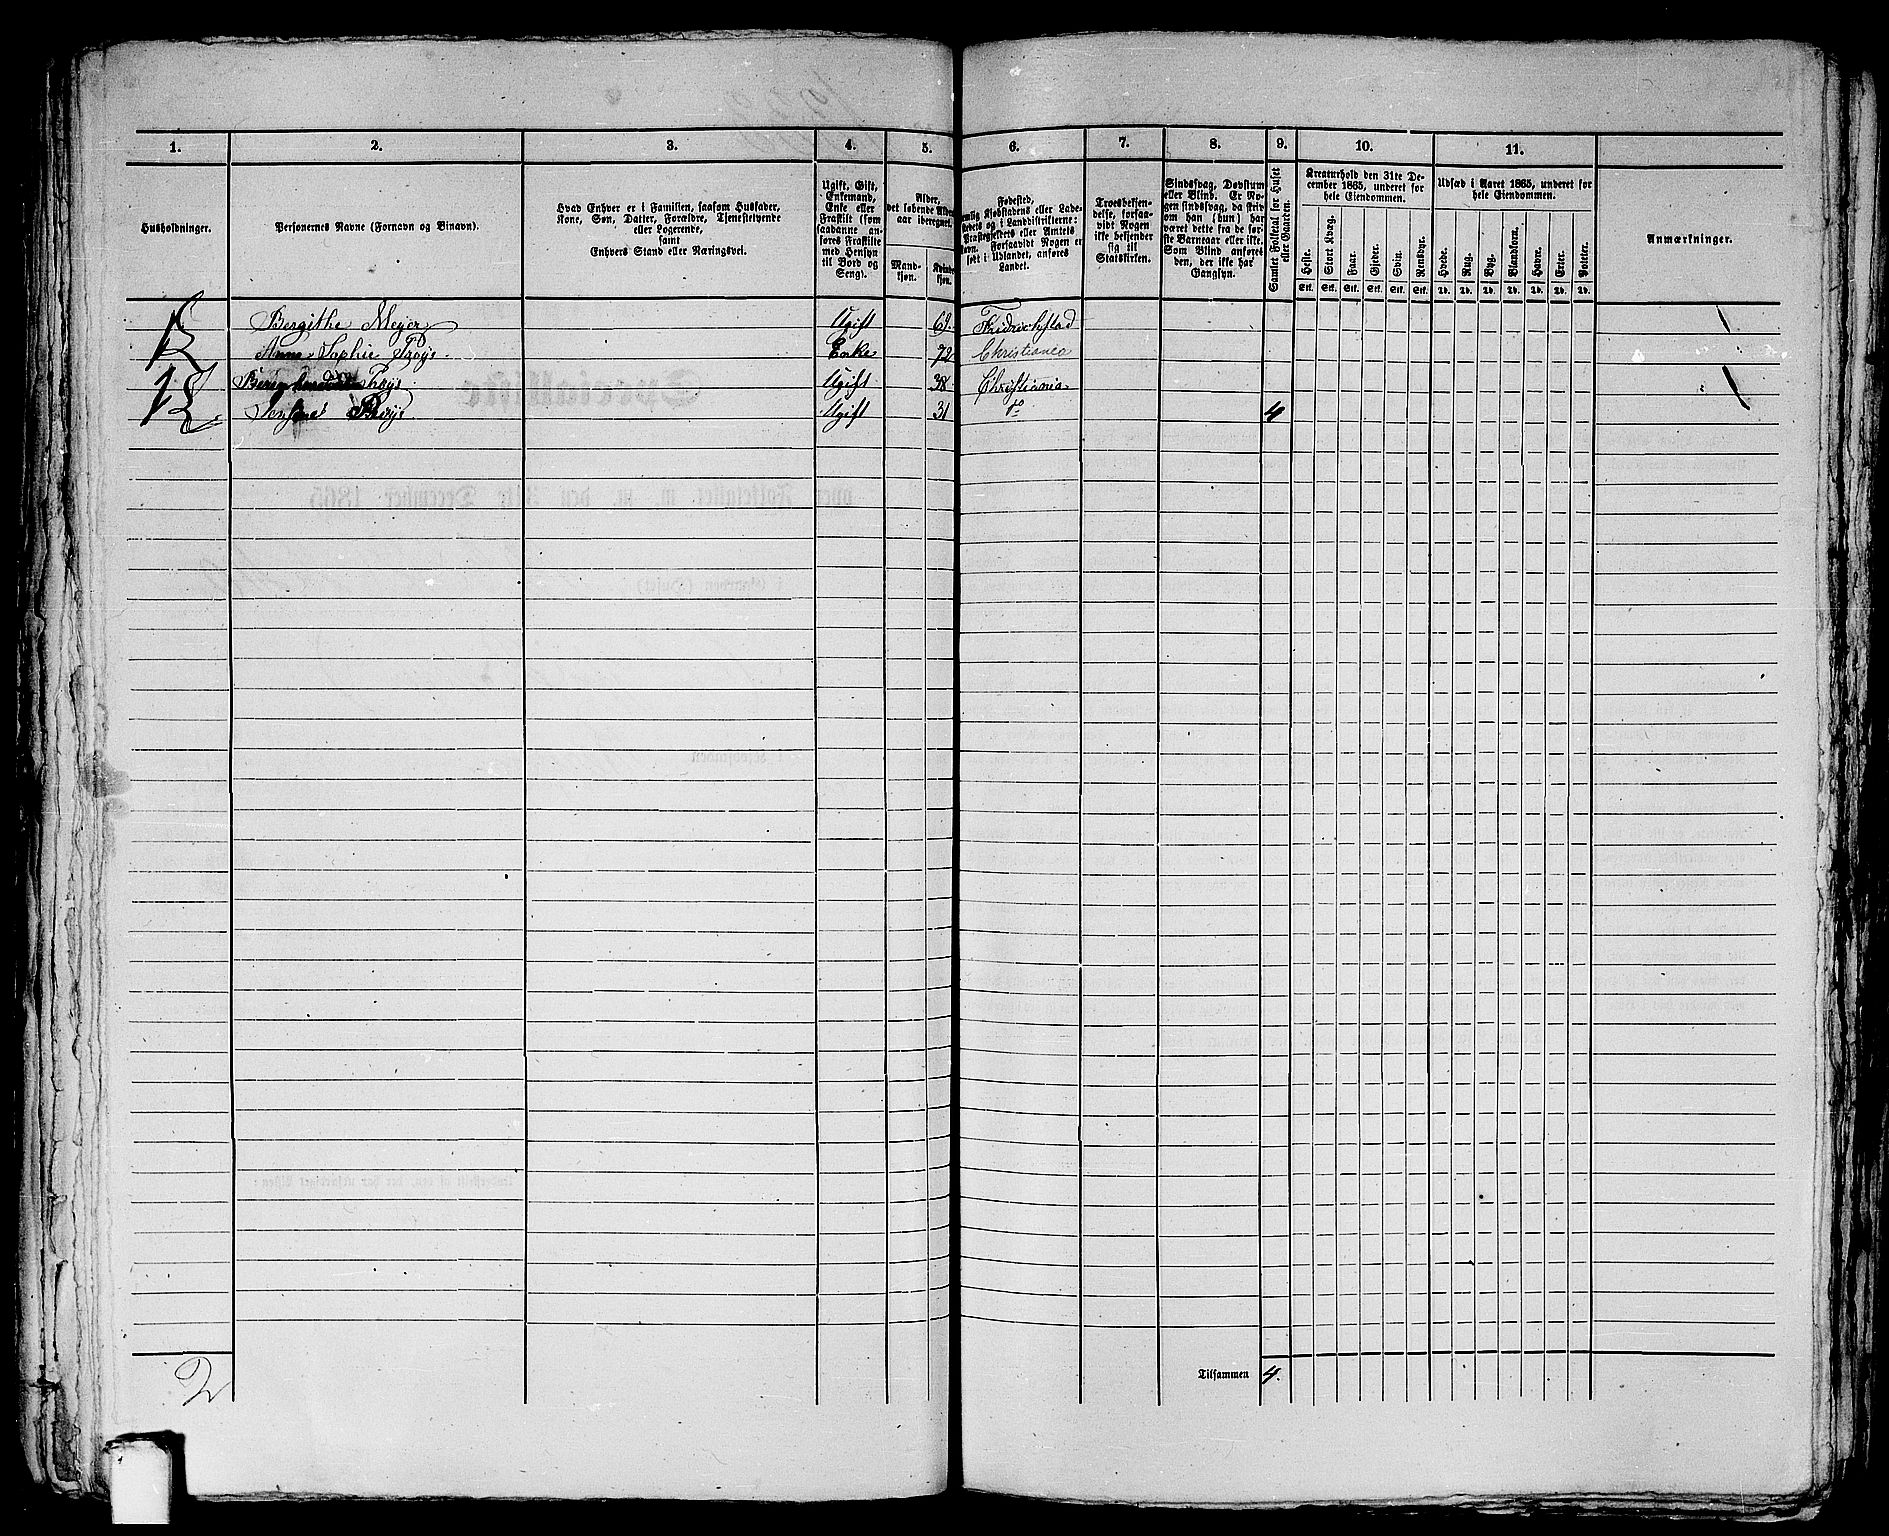 1. 2. 3. 4. 5. 6. 7. 8. 9. 10. 11.
Husholdninger.
Personernes Navne (Fornavn og Binavn).
Hvad Enhver er i Familien, saasom Husfader,
Kone, Søn, Datter, Forældre, Tjenestetyende
eller Logerende,
samt
Enhvers Stand eller Næringsvei.
Ugift, Gift,
Enkemand,
Enke eller
Fraskilt (som
saadanne an-
føres Fraskilte
med Hensyn
til Bord og
Seng).
Alder,
det løbende Alders-
aar iberegnet.
Mand-
kjøn.
Kvinde-
kjøn.
Fødested,
Kjøbstadens eller Lade-
stedets og i Landdistrikterne:
Præstegjeldets eller Amtets
Navn. Forsaavidt Nogen er
født i Udlandet, anføres
Landet.
Troesbekjen-
delse, forsaa-
vidt Nogen
ikke bekjender
sig til
Statskirken.
Sindssvag, Døvstum
eller Blind. Er No-
gen sindssvag, da skriv
om han (hun) har
været dette fra de før-
ste Barneaar eller ikke.
Som Blind anføres
den, der ikke har
Gangsyn.
Samlet Folketal for Huset
eller Gaarden.
Kreaturhold den 31te De-
cember 1865, underet for
hele Eiendommen.
Heste. Stort Kvæg. Faar. Gjeder. Svin. Rensdyr.
Stk. Stk. Stk. Stk. Stk. Stk.
Udsæd i Aaret 1865, underet for
hele Eiendommen.
Hvede. Rug. Byg. Blandkorn. Havre. Erter. Poteter.
Td. Td. Td. Td. Td. Td. Td.
Anmærkninger.
Bergithe Meyer Ugift 69. Fredrichstad
Anne Sophie Enke 72 Christiania
Ugift 38 Christiania
Ugift 31 do 4
2 Tilsammen 4.